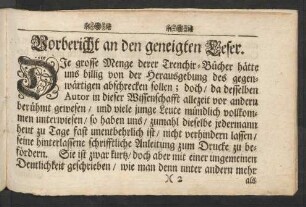 Vorbericht an den geneigten Leser.
DIe grosse Menge derer Trenchir-Bücher hätte
uns billig von der Herausgebung des gegen-
wärtigen abschrecken sollen; doch/ da desselben
Autor in dieser Wissenschafft allezeit vor andern
berühmt gewesen/ und viele junge Leute mündlich vollkom-
men unterwiesen/ so haben uns/ zumahl dieselbe jedermann
heut zu Tage fast unentbehrlich ist/ nicht verhindern lassen/
seine hinterlassene schrifftliche Anleitung zum Drucke zu be-
fördern. Sie ist zwar kurtz/ doch aber mit einer ungemeinen
Deutlichkeit geschrieben/ wie man denn unter andern mehr
X 2
als